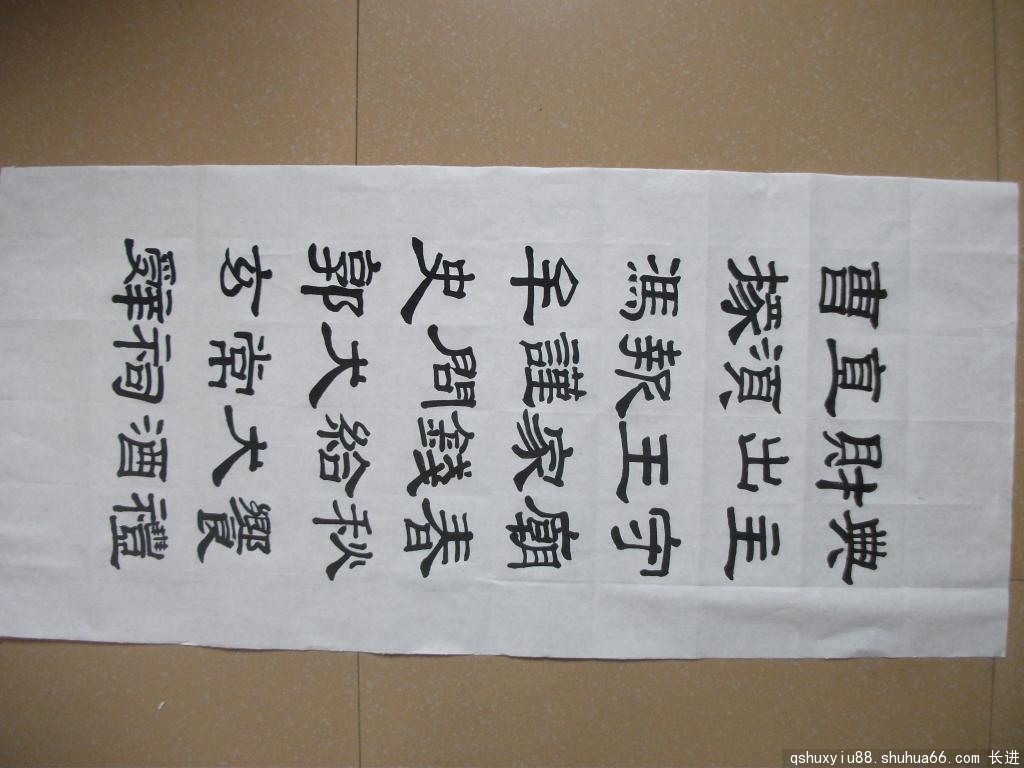 典主守廟春秋饗禮
財出王家錢給大酒
直須報謹問大常祠
曹掾馮牟史郭玄辭
qshuxyiu88.shuhua66.com 长进